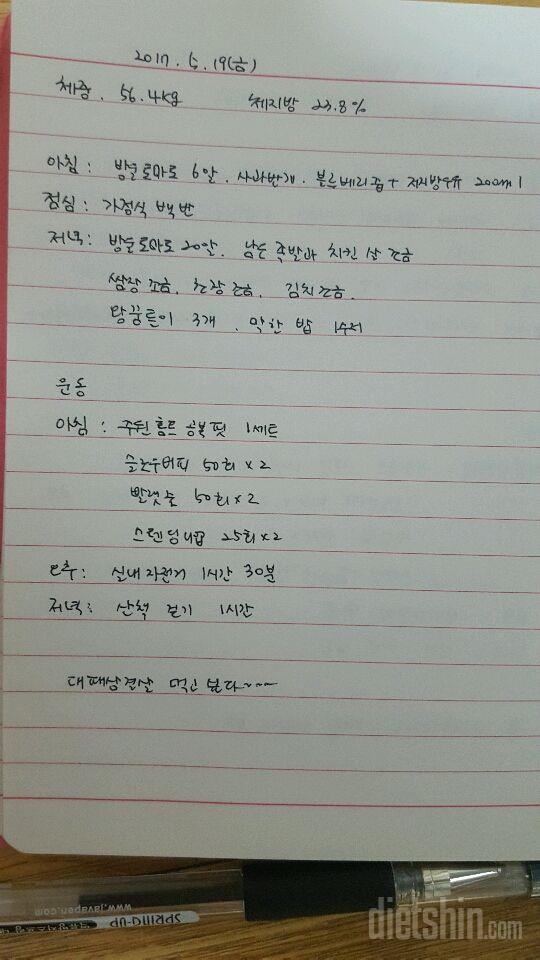 2017. 5. 19(금)
체중. 56.4kg 체지방 23.8%
아침: 방울토마토 6알. 사과반개. 블루베리즙+저지방우유 200ml
점심: 가정식 백반
저녁: 방울토마토 20알. 남은 족발과 치킨 살 조금
쌈장 조금. 된장 조금. 김치 조금.
땅꿍률이 3개. 막한 밥 1수저
운동
아침: 주원홈트 공복 핏 1세트
슬로우버피 50회×2
발렛 50회×2
스텐딩니업 25회×2
오후: 실내자전거 1시간 30분
저녁: 산책 걷기 1시간
대패삼겹살 먹고 싶다~~~
www.javapen.com
SPRING-UP
dietshin.com